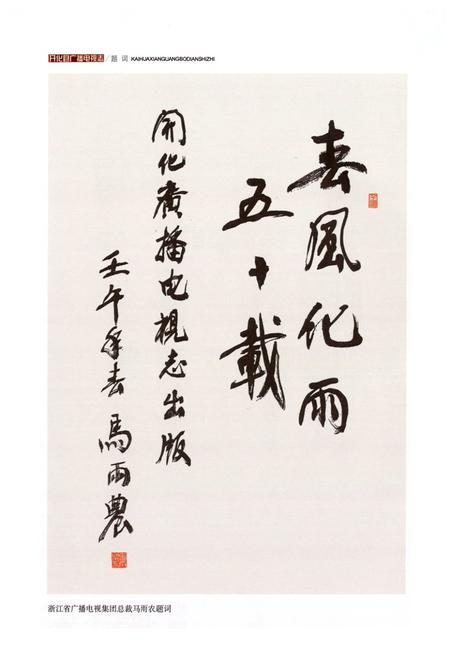 开化县广播电视志/题 词 KAIHUAXIANGUANGBODIANSHIZHI
春風化雨
五十載
開化廣播电視志出版
壬午年春 馬雨農
浙江省广播电视集团总裁马雨农题词